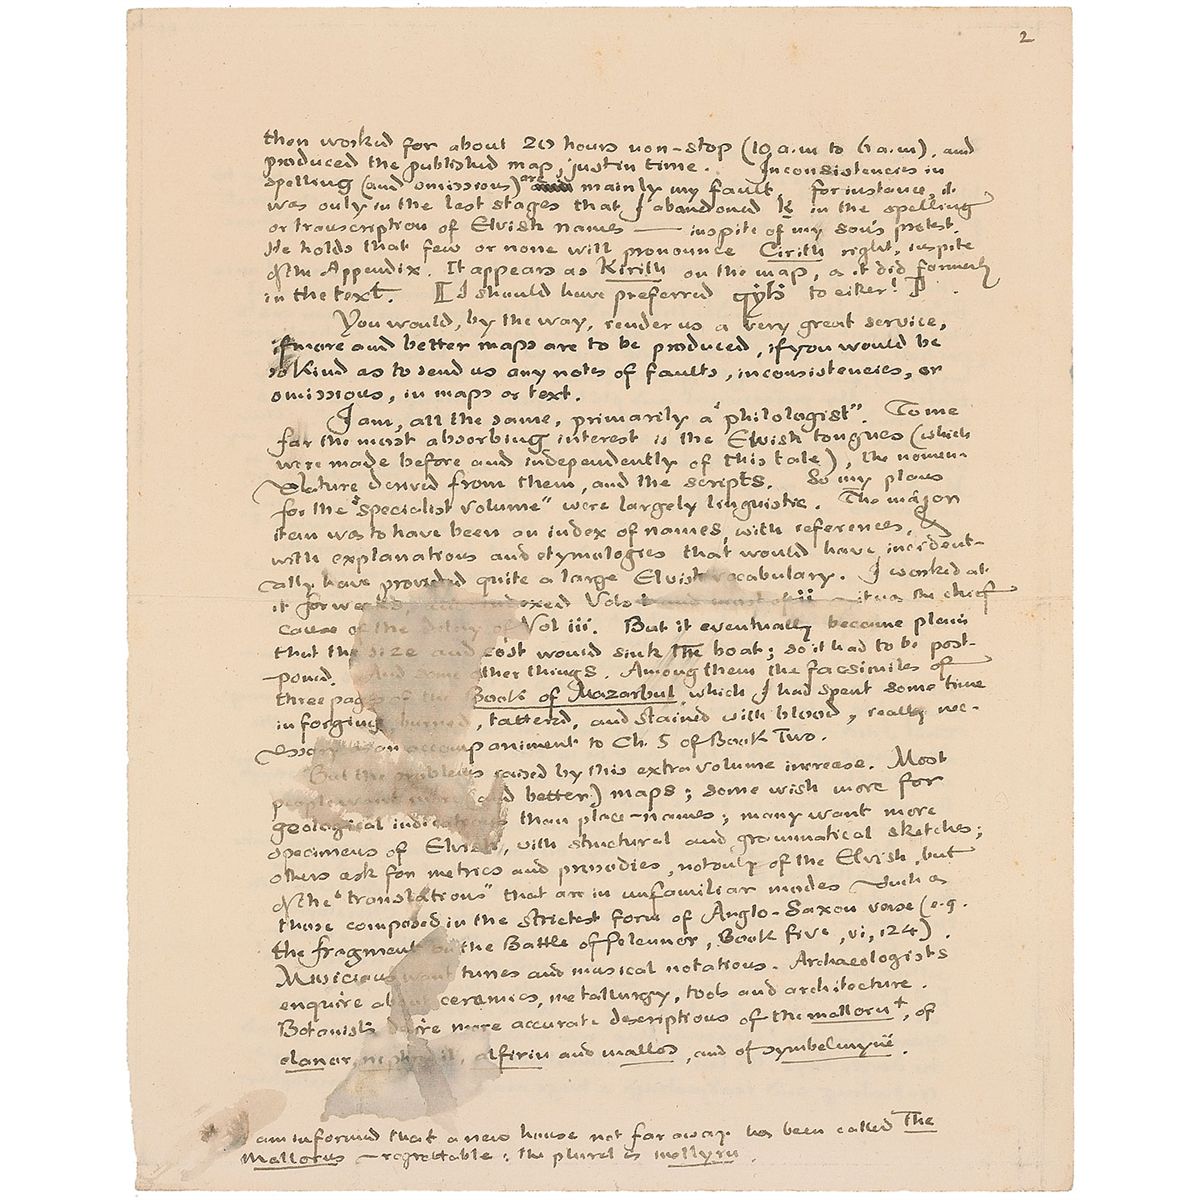 2
then worked for about 20 hours non-stop (10 a.m to 6 a.m), and
produced the published map, just in time. Inconsistencies in
spelling (and omissions) are mainly my fault. for instance, it
was only in the last stages that I abandoned k in the spelling
or transcription of Elvish names — in spite of my son's protest.
He holds that few or none will pronounce Cirith right, inspite
of the Appendix. It appears as Kirith on the map, as it did formerly
in the text. [I should have preferred to either!]
You would, by the way, render us a very great service,
if more and better maps are to be produced, if you would be
so kind as to send us any notes of faults, inconsistencies, or
omissions, in maps or text.
I am, all the same, primarily a "philologist". To me
far the most absorbing interest is the Elvish tongues (which
were made before and independently of this tale), the nomen-
clature derived from them, and the scripts. So my plans
for the "specialist volume" were largely linguistic. The major
item was to have been an index of names, with references, &
with explanations and etymologies that would have, incident-
ally have provided quite a large Elvish vocabulary. I worked at
it for weeks, and indexed Vols I and most of ii – it was the chief
cause of the delay of Vol iii. But it eventually became plain
that the size and cost would sink the boat; so it had to be post-
poned. And some other things. Among them the facsimiles of
three pages of the Book of Mazarbul, which I had spent some time
in forging, burned, tattered, and stained with blood, really nec-
essary as an accompaniment to Ch. 5 of Book Two.
But the problems raised by this extra volume increase. Most
people want more (and better) maps; some wish more for
geological indications than place-names; many want more
specimens of Elvish, with structural and grammatical sketches;
others ask for metrics and prosodies, not only of the Elvish, but
of the "translations" that are in unfamiliar modes such as
those composed in the strictest form of Anglo-Saxon verse (e.g.
the fragment on the Battle of Pelennor, Book Five, vi, 124).
Musicians want tunes and musical notations. Archaeologists
enquire about ceramics, metallurgy, tools and architecture.
Botanists desire more accurate descriptions of the mallorn+, of
elanor, niphredil, alfirin and mallos, and of symbelmynë.
I am informed that a new house not far away has been called The
Mallorns – regrettable: the plural is mellyrn.